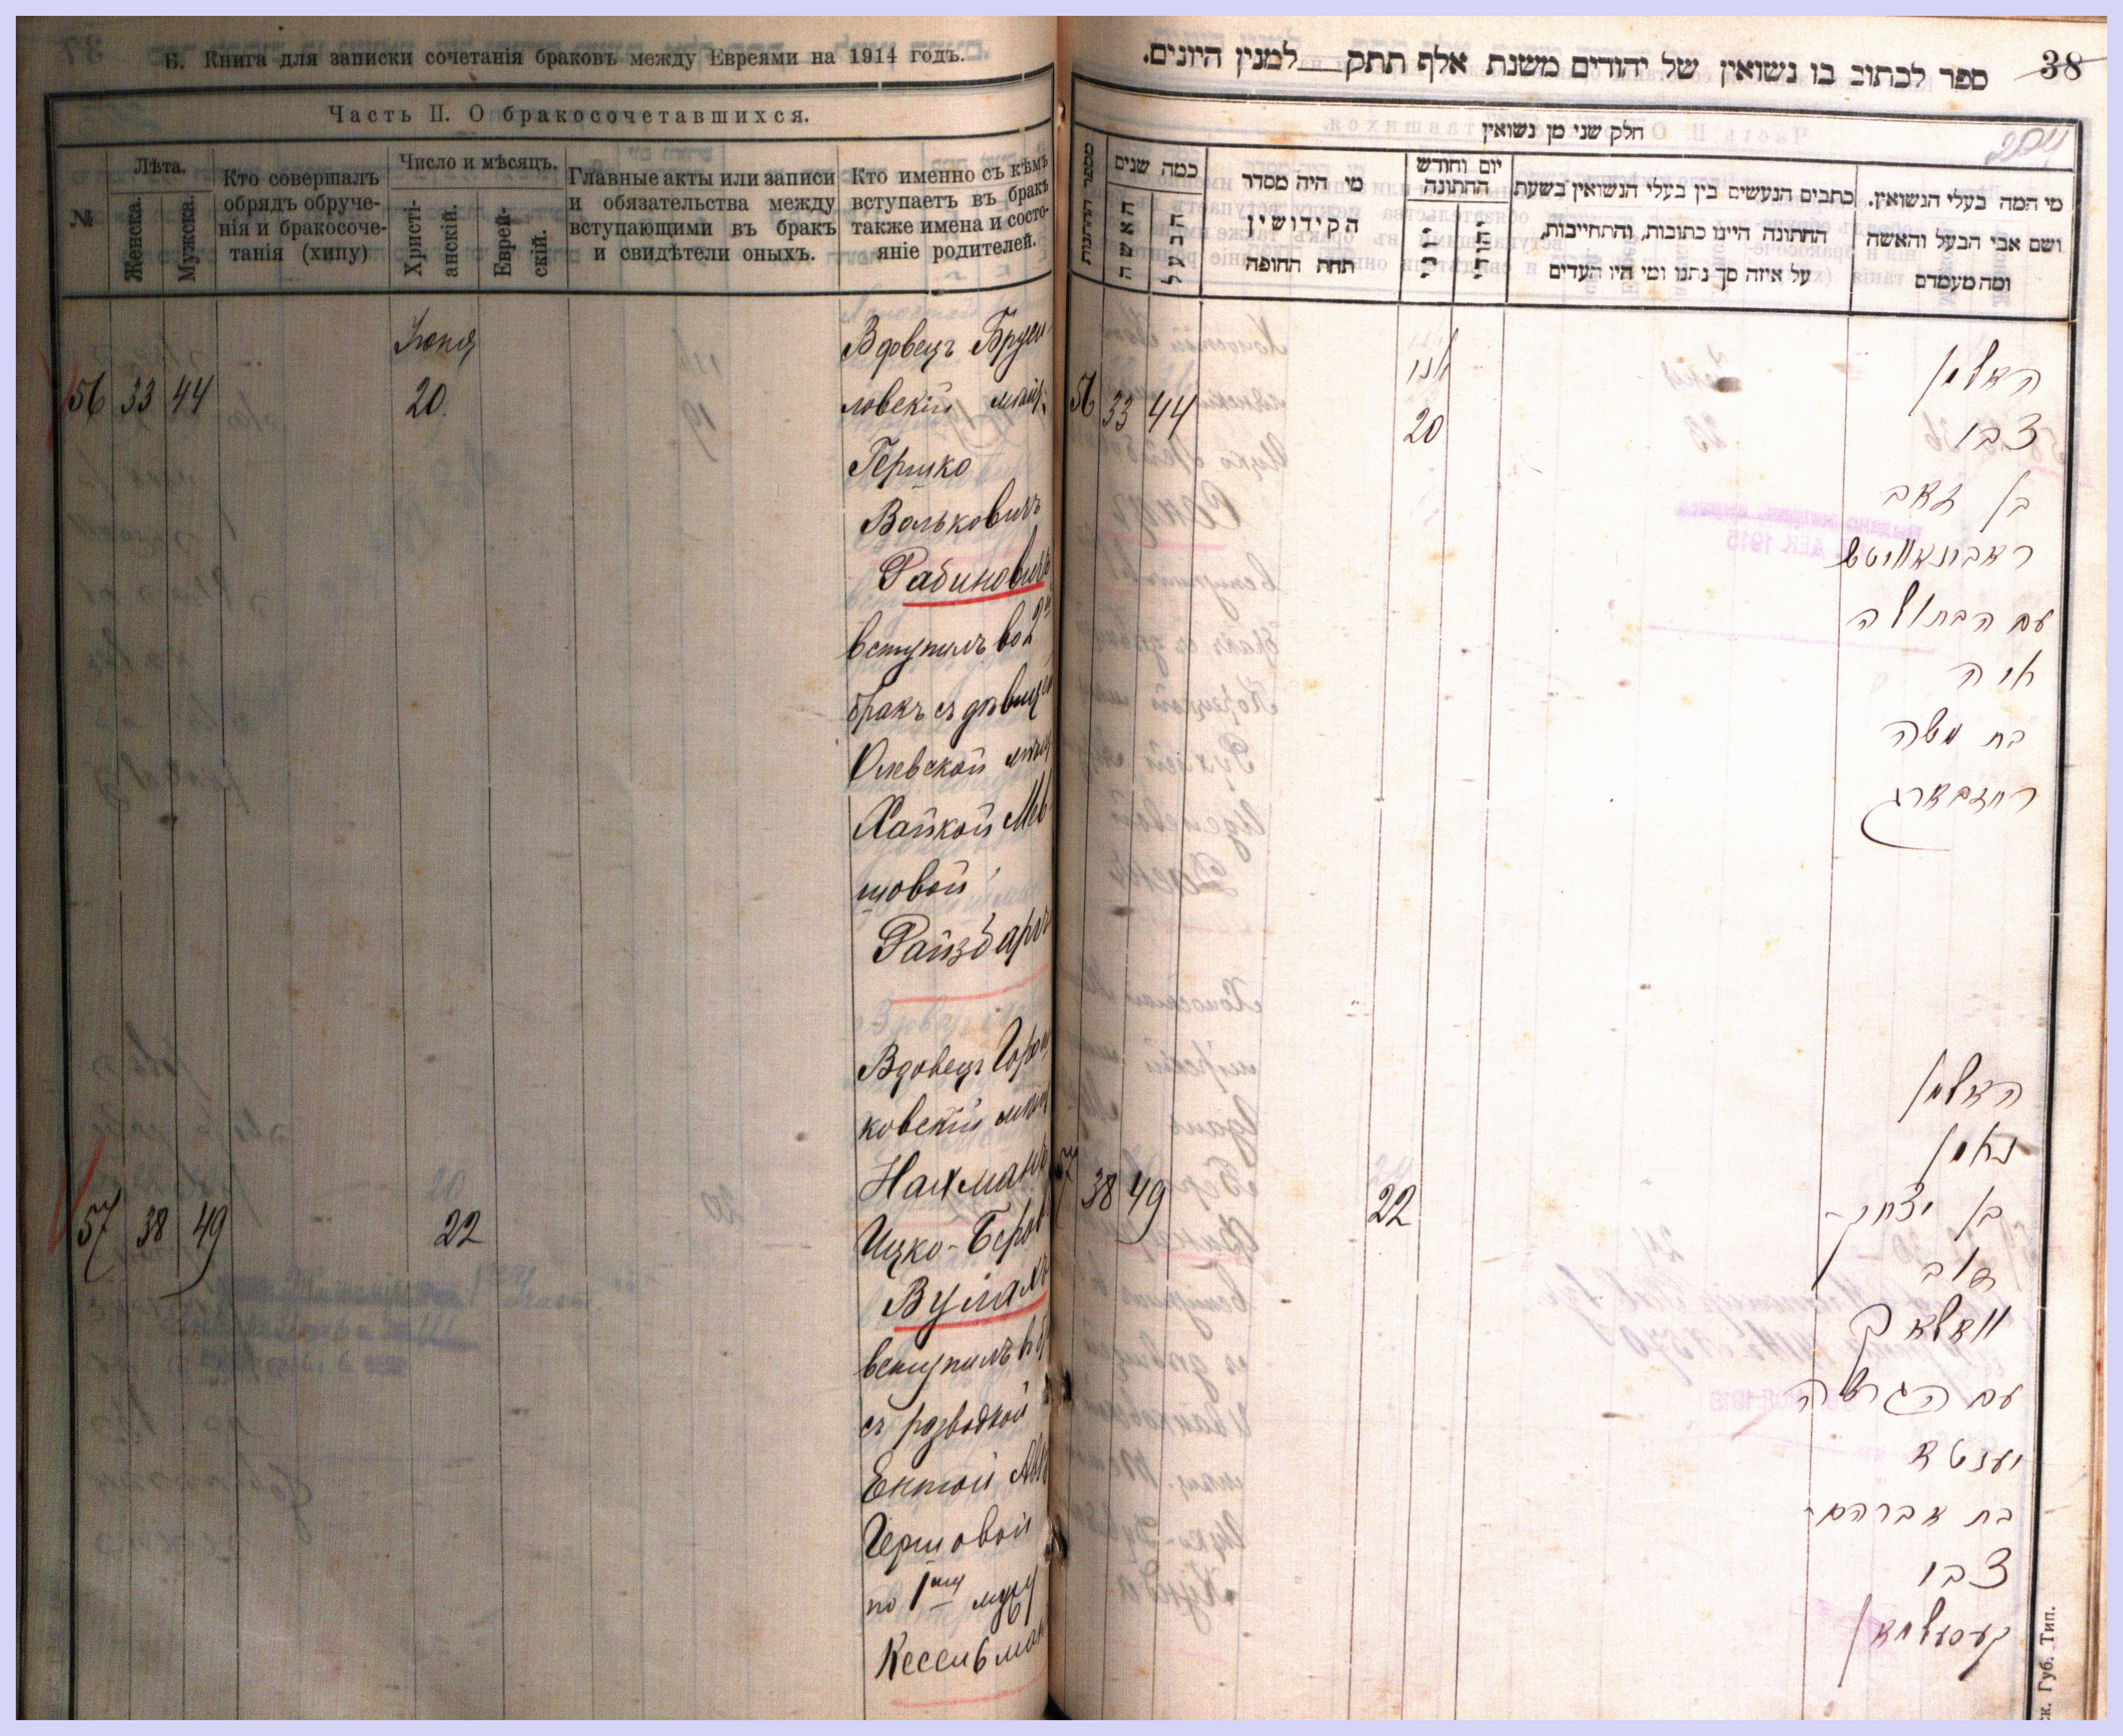 Б. Книга для записки сочетанія браковъ между Евреями на 1914 годъ.
Часть II. О бракосочетавшихся.
№
Лѣта.
Женска.
Мужска.
Кто совершалъ
обрядъ обруче-
нія и бракосоче-
танія (хипу)
Число и мѣсяцъ.
Христі-
анскій.
Еврей-
скій.
Главные акты или записи
и обязательства между
вступающими въ бракъ
и свидѣтели оныхъ.
Кто именно съ кѣмъ
вступаетъ въ бракъ
также имена и состо-
яніе родителей.
56 33 44
Іюня
20
Вдовецъ Бруси
ловскій мѣщ.
Гершко
Вольковичъ
Рабиновичъ
вступилъ во 2й
бракъ съ дѣвицей
Олевской мѣщ
Хайкой Мов
шовой
Райзбаргъ
57 38 49
22
Вдовецъ Горош
ковскій мѣщ
Нахманъ
Ицко-Беров
Вулахъ
вступилъ въ б
съ разводкой
Ентой Ав
Гершовой
по 1му мужу
Кессельман
38
ספר לכתוב בו נשואין של יהודים משנת אלף תתק למנין היונים.
חלק שני מן נשואין
204
מספר החתונות
כמה שנים
האשה
הבעל
מי היה מסדר
הקידושין
תחת החופה
יום וחודש
החתונה
יוני
יהודי
כתבים הנעשים בין בעלי הנשואין בשעת
החתונה היינו כתובות, והתחייבות,
על איזה סך נתנו ומי היו העדים
מי המה בעלי הנשואין.
ושם אבי הבעל והאשה
ומה מעמדם
56 33 44
יוני
20
האלמן
צבי
בן זאב
ראבינאוויטש
עם הבתולה
חיה
בת משה
רייזבארג
57 38 49
22
האלמן
נחמן
בן יצחק-
דוב
וואלאך
עם הגרושה
יענטא
בת אברהם-
צבי
קעסעלמאן
ск. Губ. Тип.